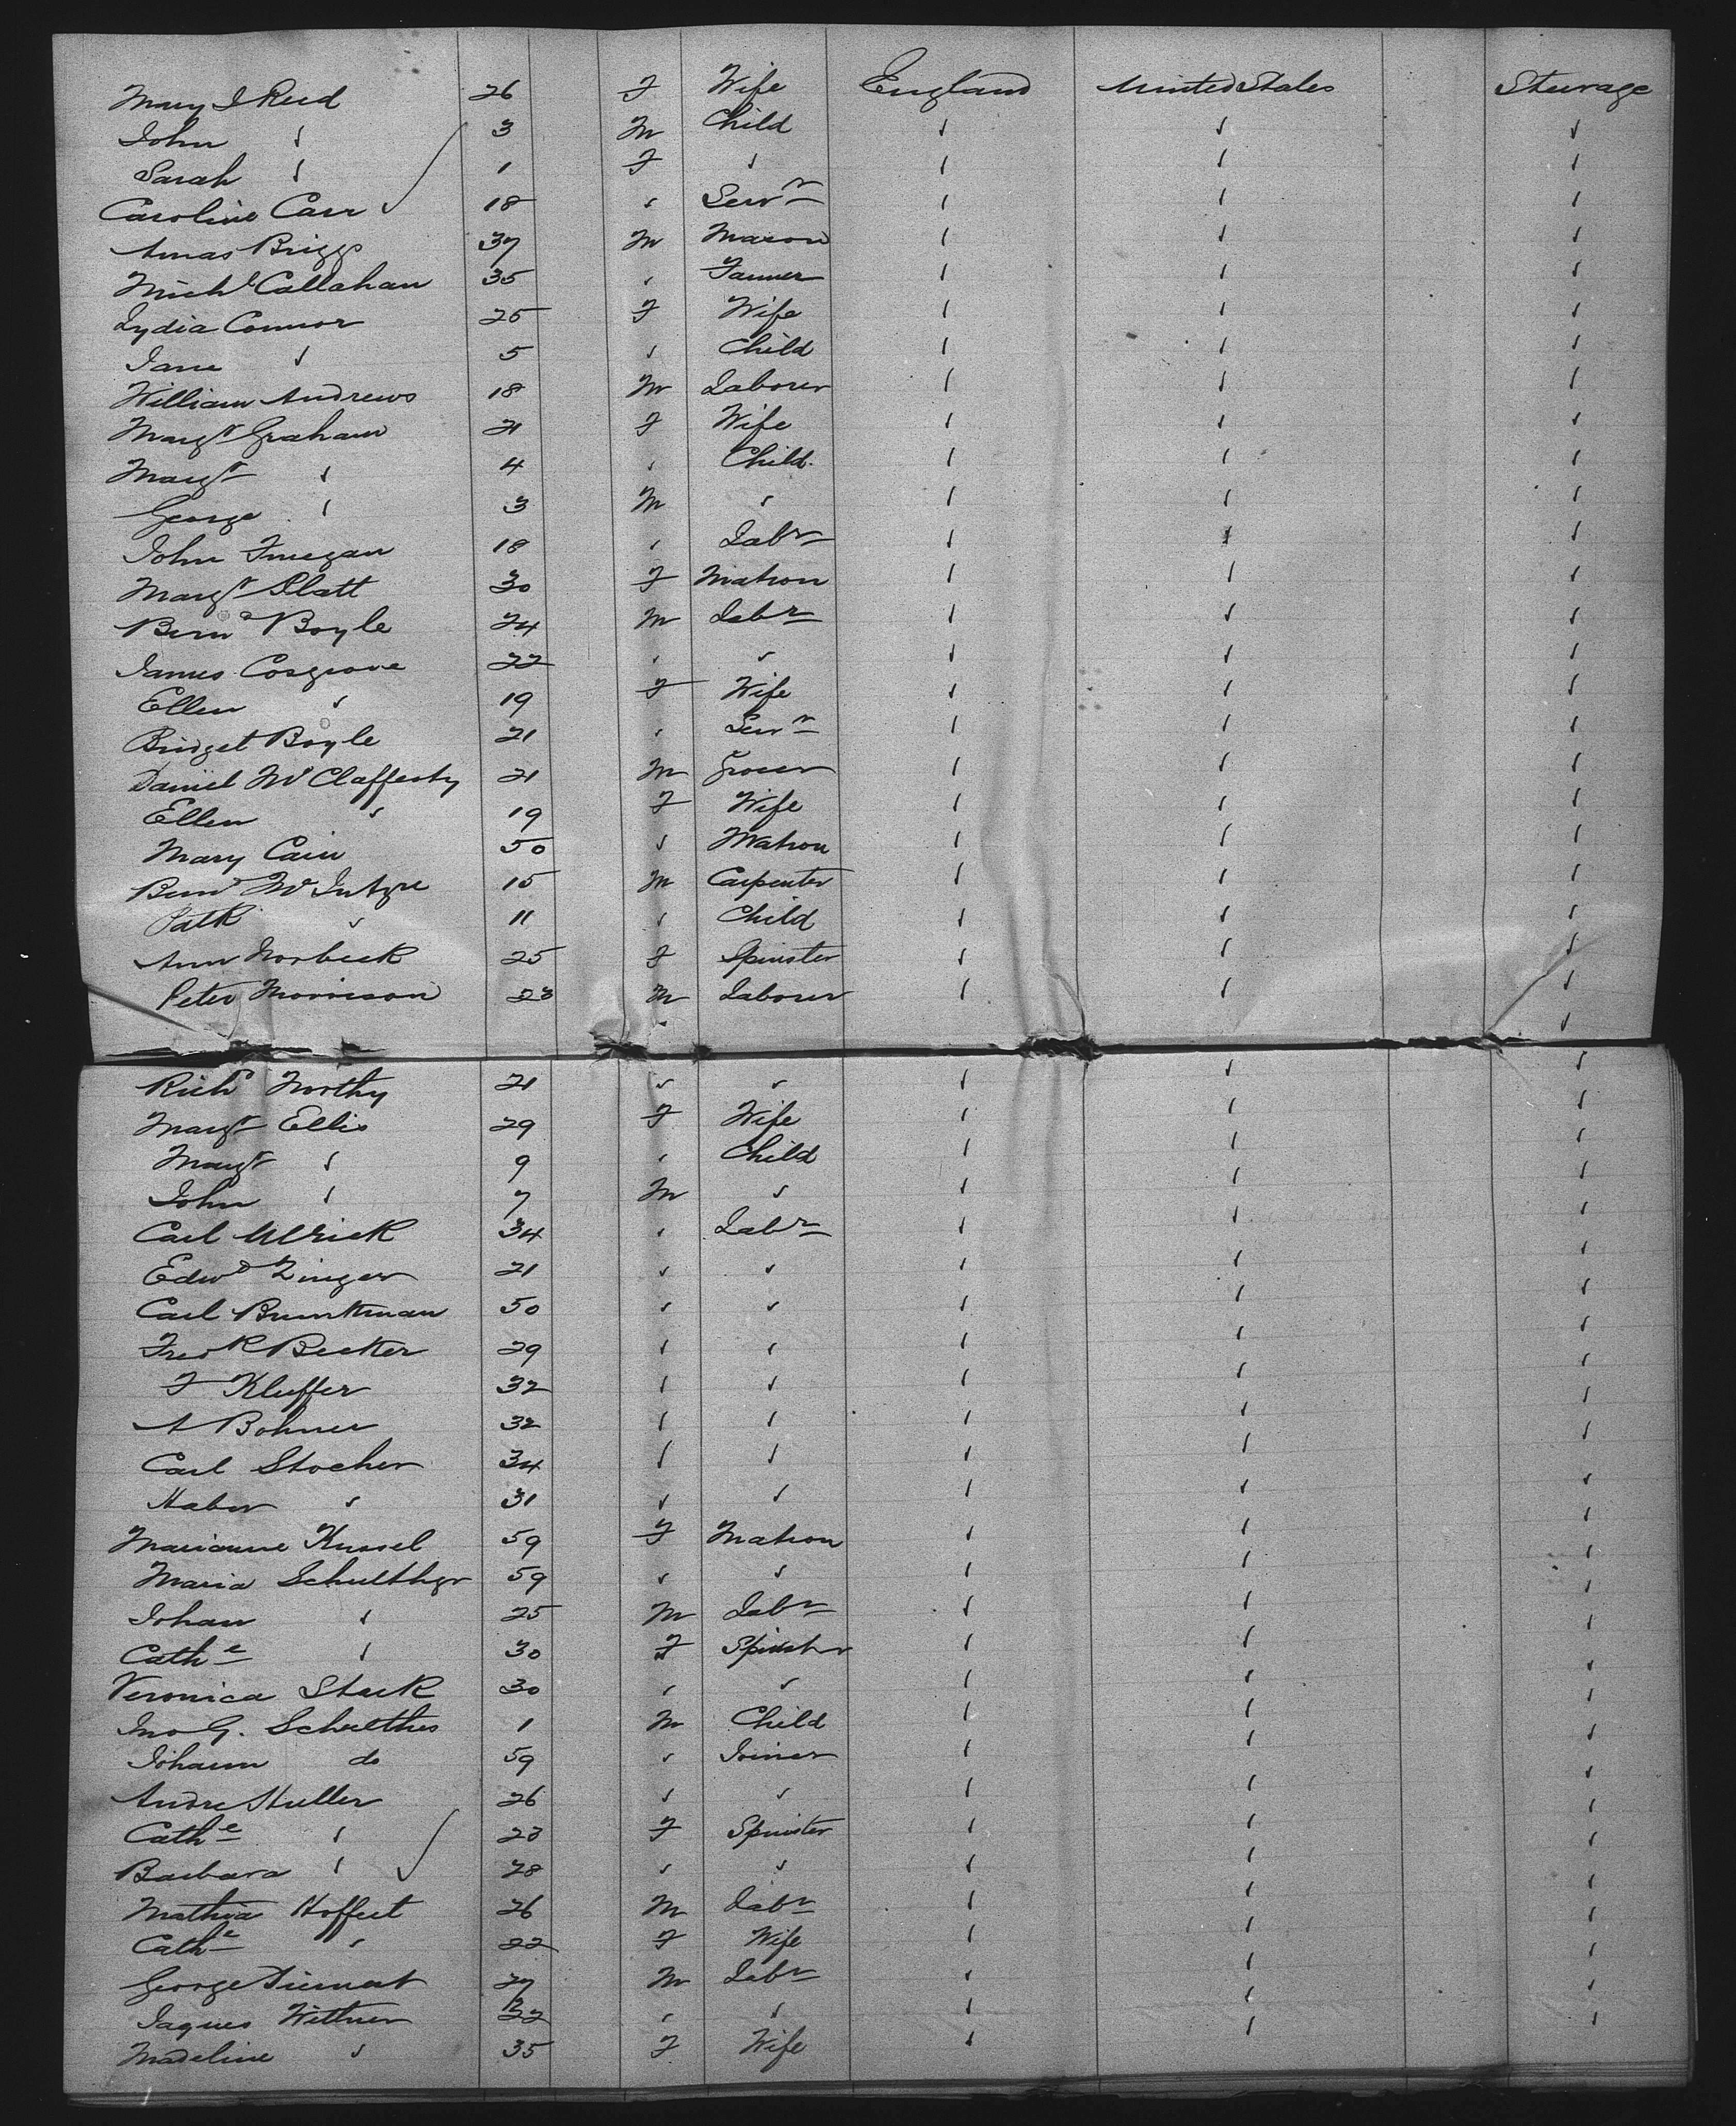 Mary J Reed 26 F Wife England United States Steerage
John " 3 M Child " " "
Sarah " 1 F " " " "
Caroline Carr 18 " Servt " " "
Amas Briggs 37 M Mason " " "
Michl Callahan 35 " Farmer " " "
Lydia Connor 25 F Wife " " "
Jane " 5 " Child " " "
William Andrews 18 M Laborer " " "
Margt Graham 21 F Wife " " "
Margt " 4 " Child " " "
George " 3 M " " " "
John Finegan 18 " Labr " " "
Margt Platt 30 F Matron " " "
Bernd Boyle 24 M Labr " " "
James Cosgrove 22 " " " " "
Ellen " 19 F Wife " " "
Bridget Boyle 21 " Servt " " "
Daniel McClafferty 21 M Grocer " " "
Ellen " 19 F Wife " " "
Mary Cain 50 " Matron " " "
Bernd McIntyre 15 M Carpenter " " "
Patk " 11 " Child " " "
Ann Norbeck 25 F Spinster " " "
Peter Morrison 23 M Laborer " " "
" "
Richd Northy 21 " " " " "
Margt Ellis 29 F Wife " " "
Margt " 9 " Child " " "
John " 7 M " " " "
Carl Ulrick 34 " Labr " " "
Edwd Zinger 21 " " " " "
Carl 50 " " " " "
Fredk Becker 29 " " " " "
F Kluffer 32 " " " " "
A Bohner 32 " " " " "
Carl Stocher 34 " " " " "
" 31 " " " " "
Marianne Kussel 59 F Matron " " "
Maria 59 " " " " "
Johan " 25 M Labr " " "
Cathe " 30 F Spinster " " "
Veronica Stark 30 " " " " "
Jno G. Schulthes 1 M Child " " "
Johann do 59 " Joiner " " "
Andre Huller 26 " " " " "
Cathe " 23 F Spinster " " "
Barbara " 28 " " " " "
Mathia Hoffert 26 M Labr " " "
Cathe " 22 F Wife " " "
George 27 M Labr " " "
Jaques Wittner 22 " " " " "
Madeline " 35 F Wife " " "